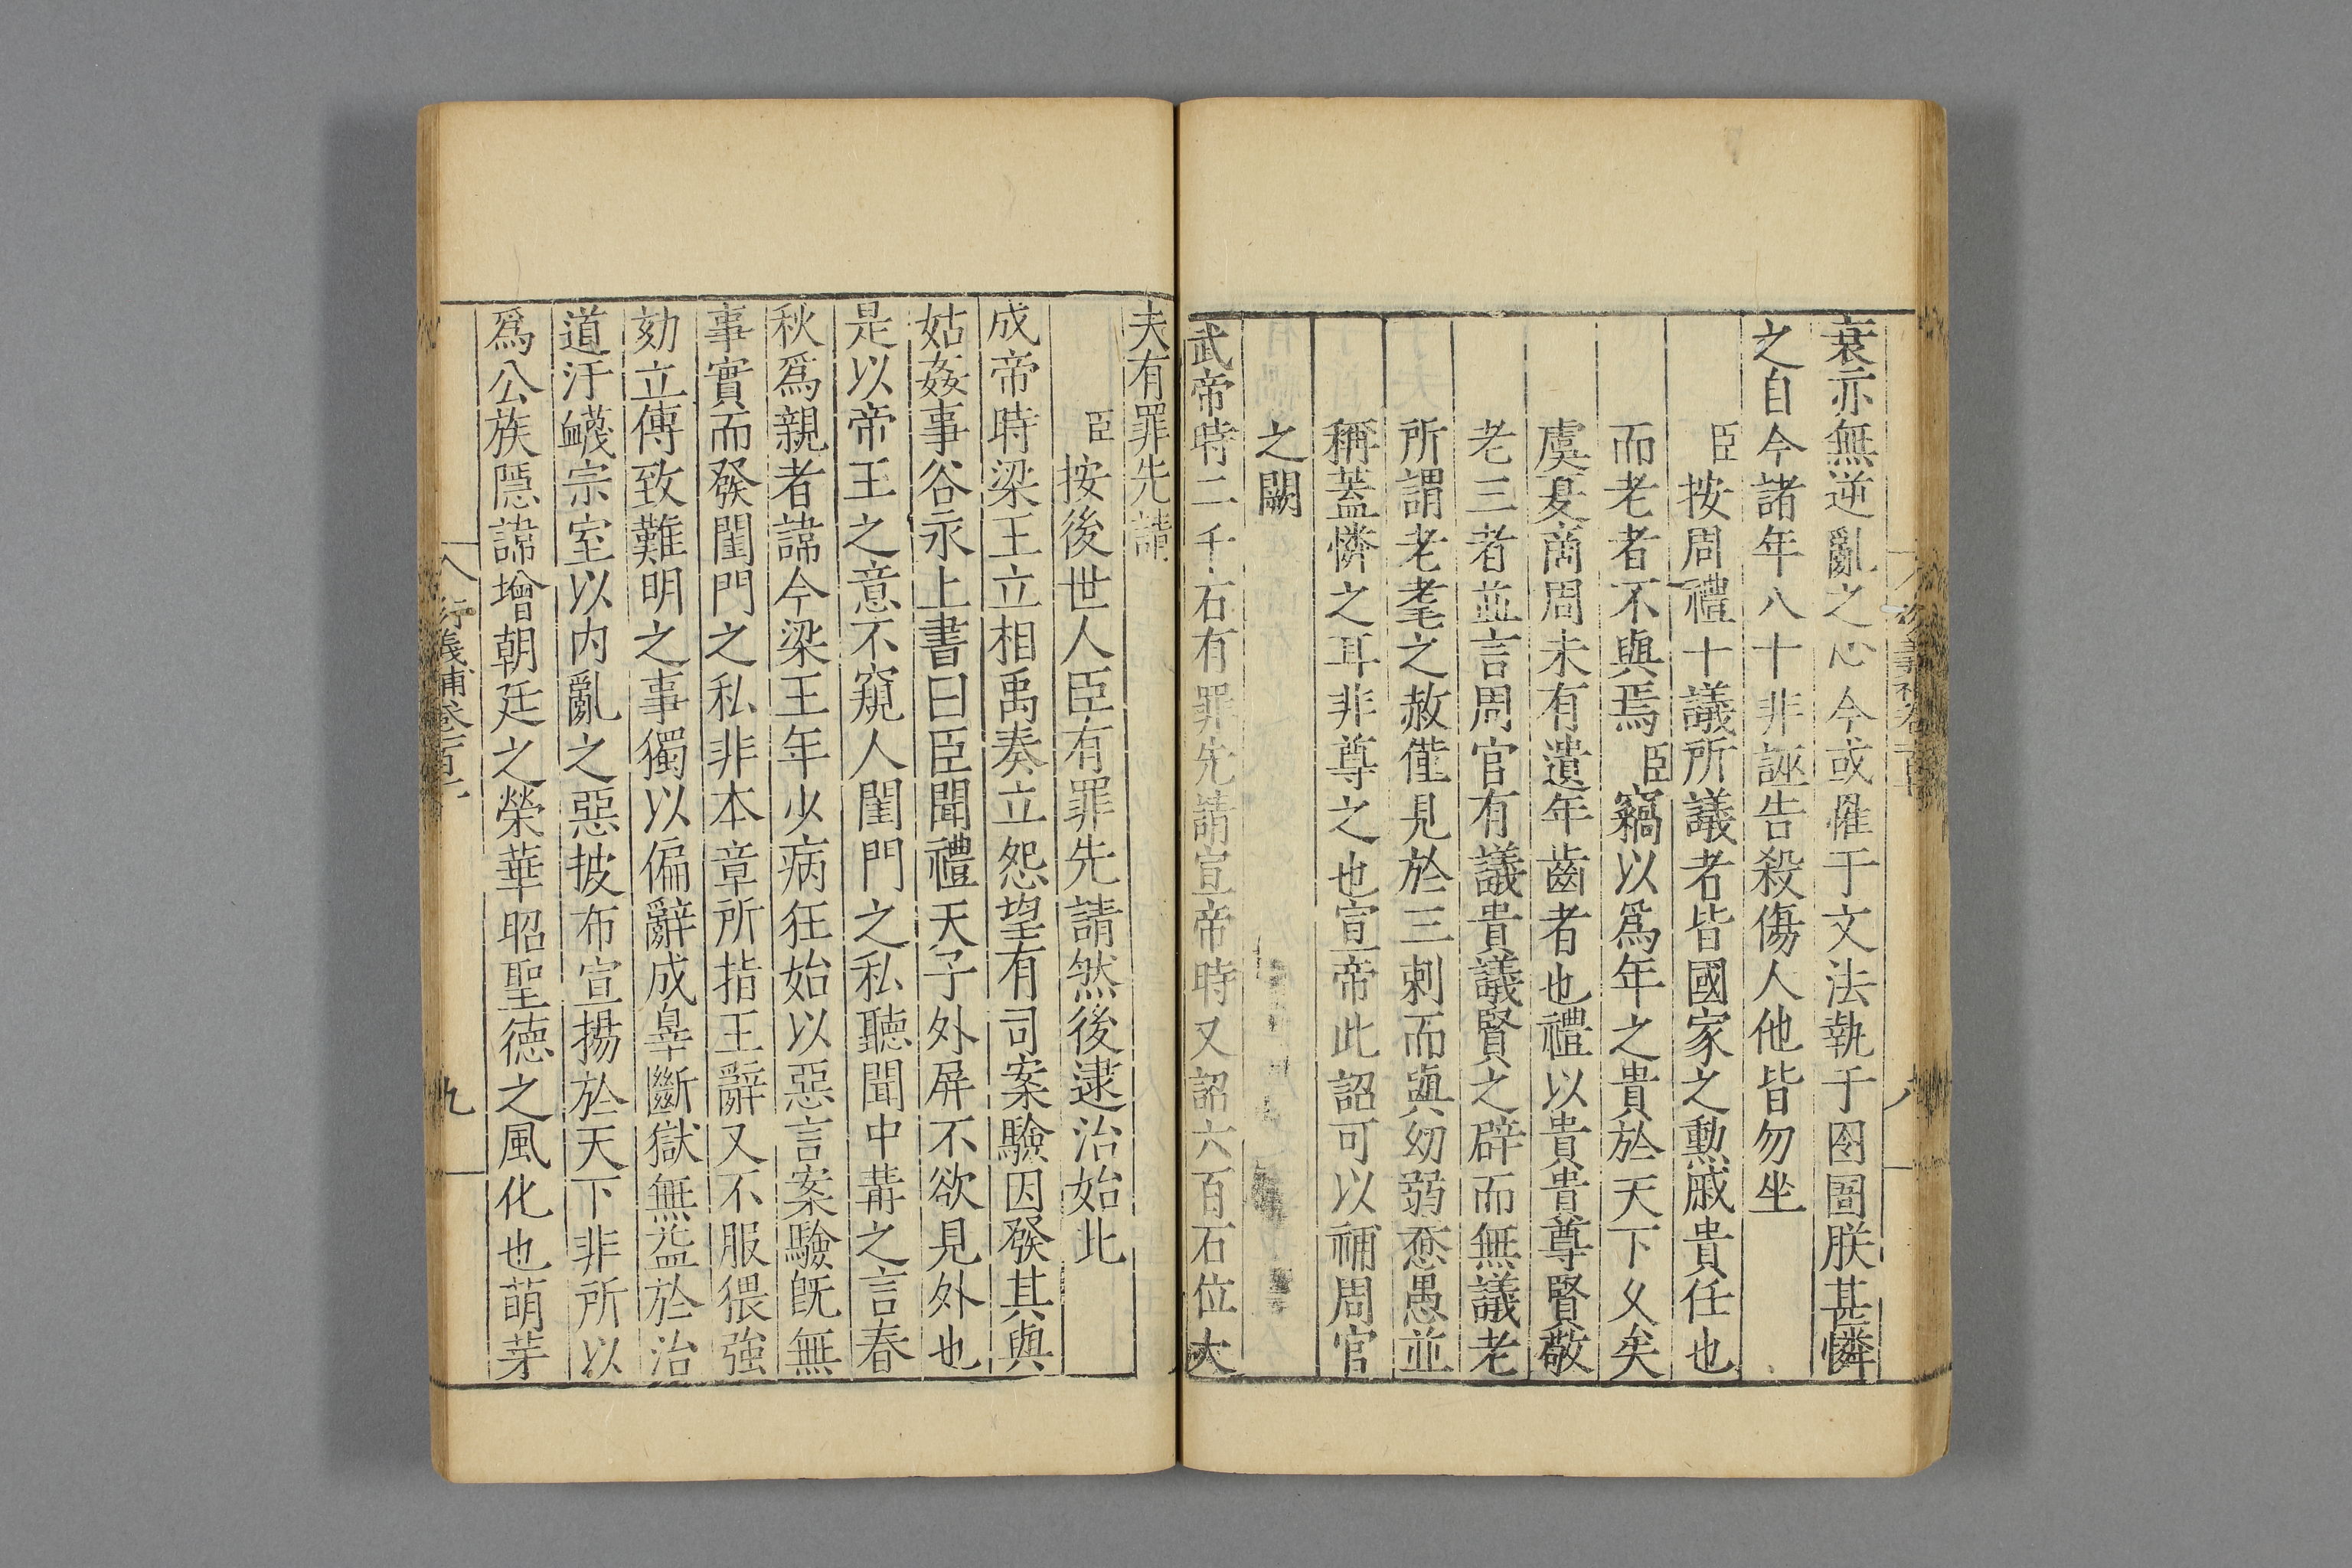 衰亦無逆亂之心今或罹于文法執于囹圄朕甚憐
之自今諸年八十非誣告殺傷人他皆勿坐
臣按周禮十議所議者皆國家之勲戚貴任也
而老者不與焉臣竊以爲年之貴於天下乆矣
虞夏商周未有遺年齒者也禮以貴貴尊賢敬
老三者並言周官有議貴議賢之辟而無議老
所謂老耄之赦僅見於三刺而與㓜弱惷愚並
稱蓋憐之耳非尊之也宣帝此詔可以補周官
之闕
武帝時二千石有罪先請宣帝時又詔六百石位大
夫有罪先請
臣按後世人臣有罪先請然後逮治始此
成帝時梁王立相禹奏立怨望有司案驗因發其與
姑姦事谷永上書曰臣聞禮天子外屏不欲見外也
是以帝王之意不窺人閨門之私聽聞中冓之言春
秋爲親者諱今梁王年少病狂始以惡言案驗旣無
事實而發閨門之私非本章所指王辭又不服猥強
劾立傳致難明之事獨以偏辭成辠斷獄無益於治
道汙衊宗室以内亂之惡披布宣揚於天下非所以
爲公族隱諱增朝廷之榮華昭聖德之風化也萌芽
衍義補卷一百十
九